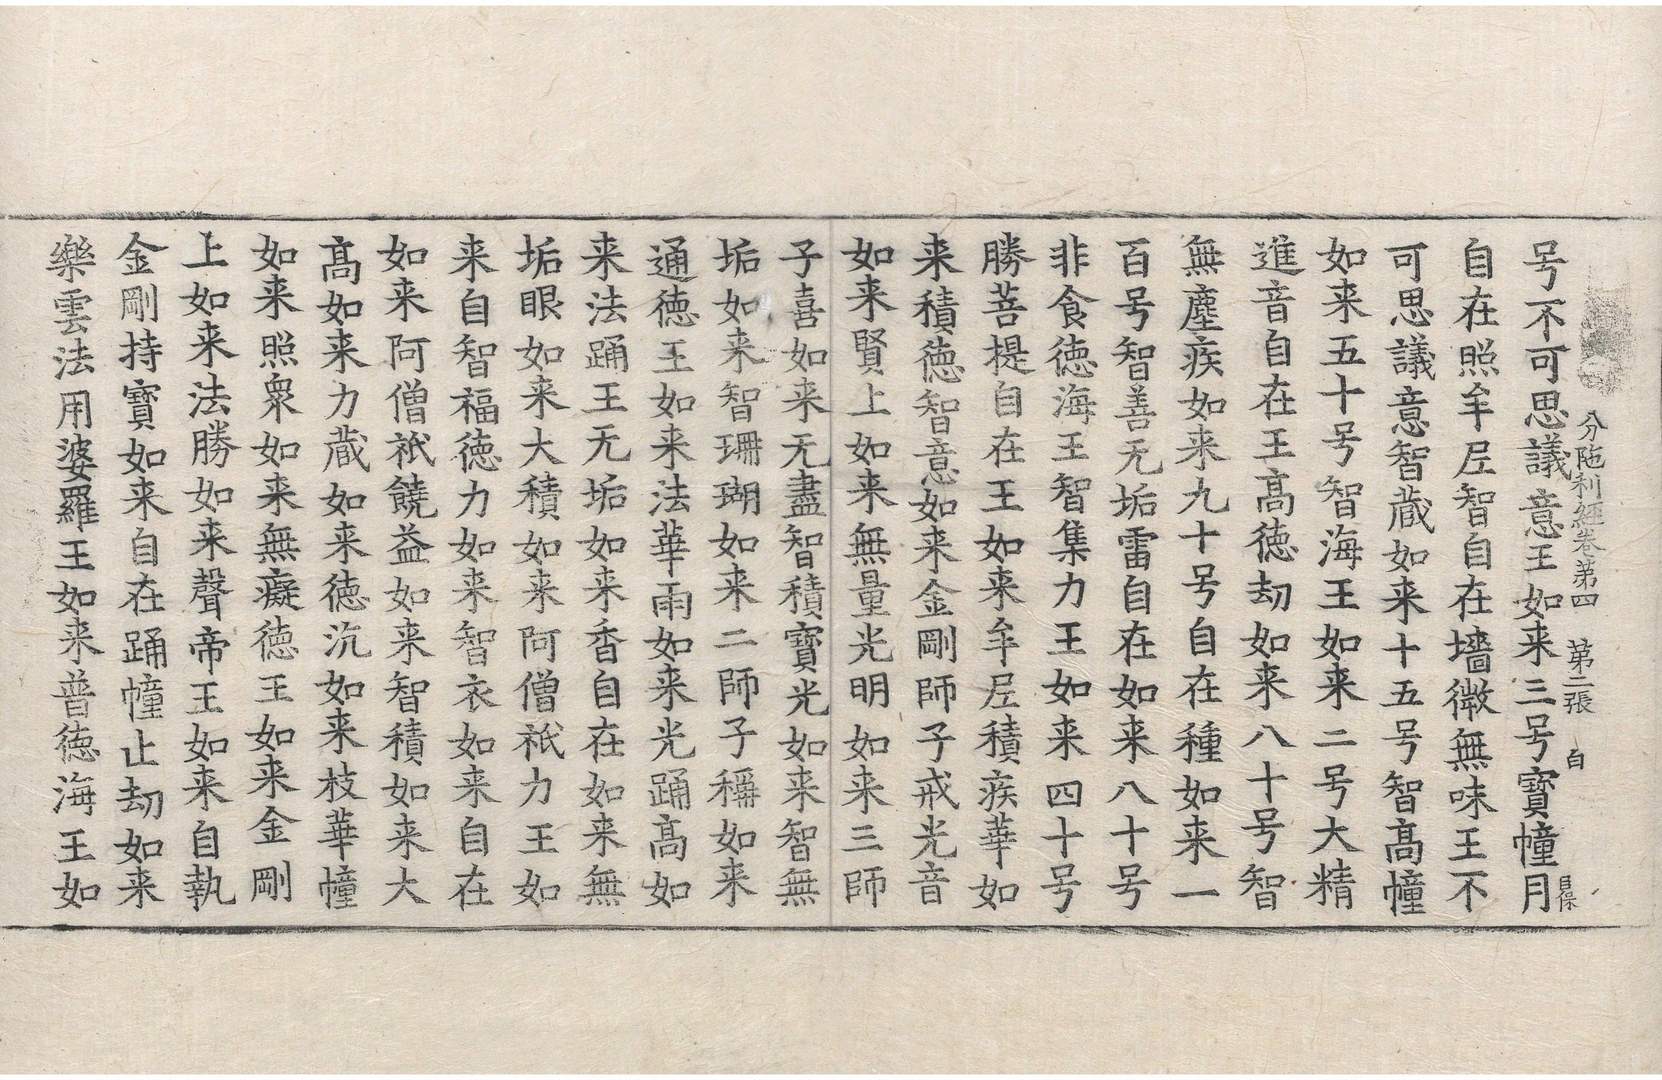 分陁利經卷第四 第二張 白
号不可思議意王如来三号寶幢月
自在照牟尼智自在墻微無味王不
可思議意智蔵如来十五号智髙幢
如来五十号智海王如来二号大精
進音自在王髙徳劫如来八十号智
無塵疾如来九十号自在種如来一
百号智善无垢雷自在如来八十号
非食徳海王智集力王如来四十号
勝菩提自在王如来牟尼積疾華如
来積徳智意如来金剛師子戒光音
如来賢上如来無量光明如来三師
子喜如来无盡智積寶光如来智無
垢如来智珊瑚如来二師子稱如来
通徳王如来法華雨如来光踊髙如
来法踊王无垢如来香自在如来無
垢眼如来大積如来阿僧祇力王如
来自智福徳力如来智衣如来自在
如来阿僧祇饒益如来智積如来大
髙如来力蔵如来徳沉如来枝華幢
如来照衆如来無癡徳王如来金剛
上如来法勝如来聲帝王如来自執
金剛持寶如来自在踊幢止劫如来
樂雲法用婆羅王如来普徳海王如